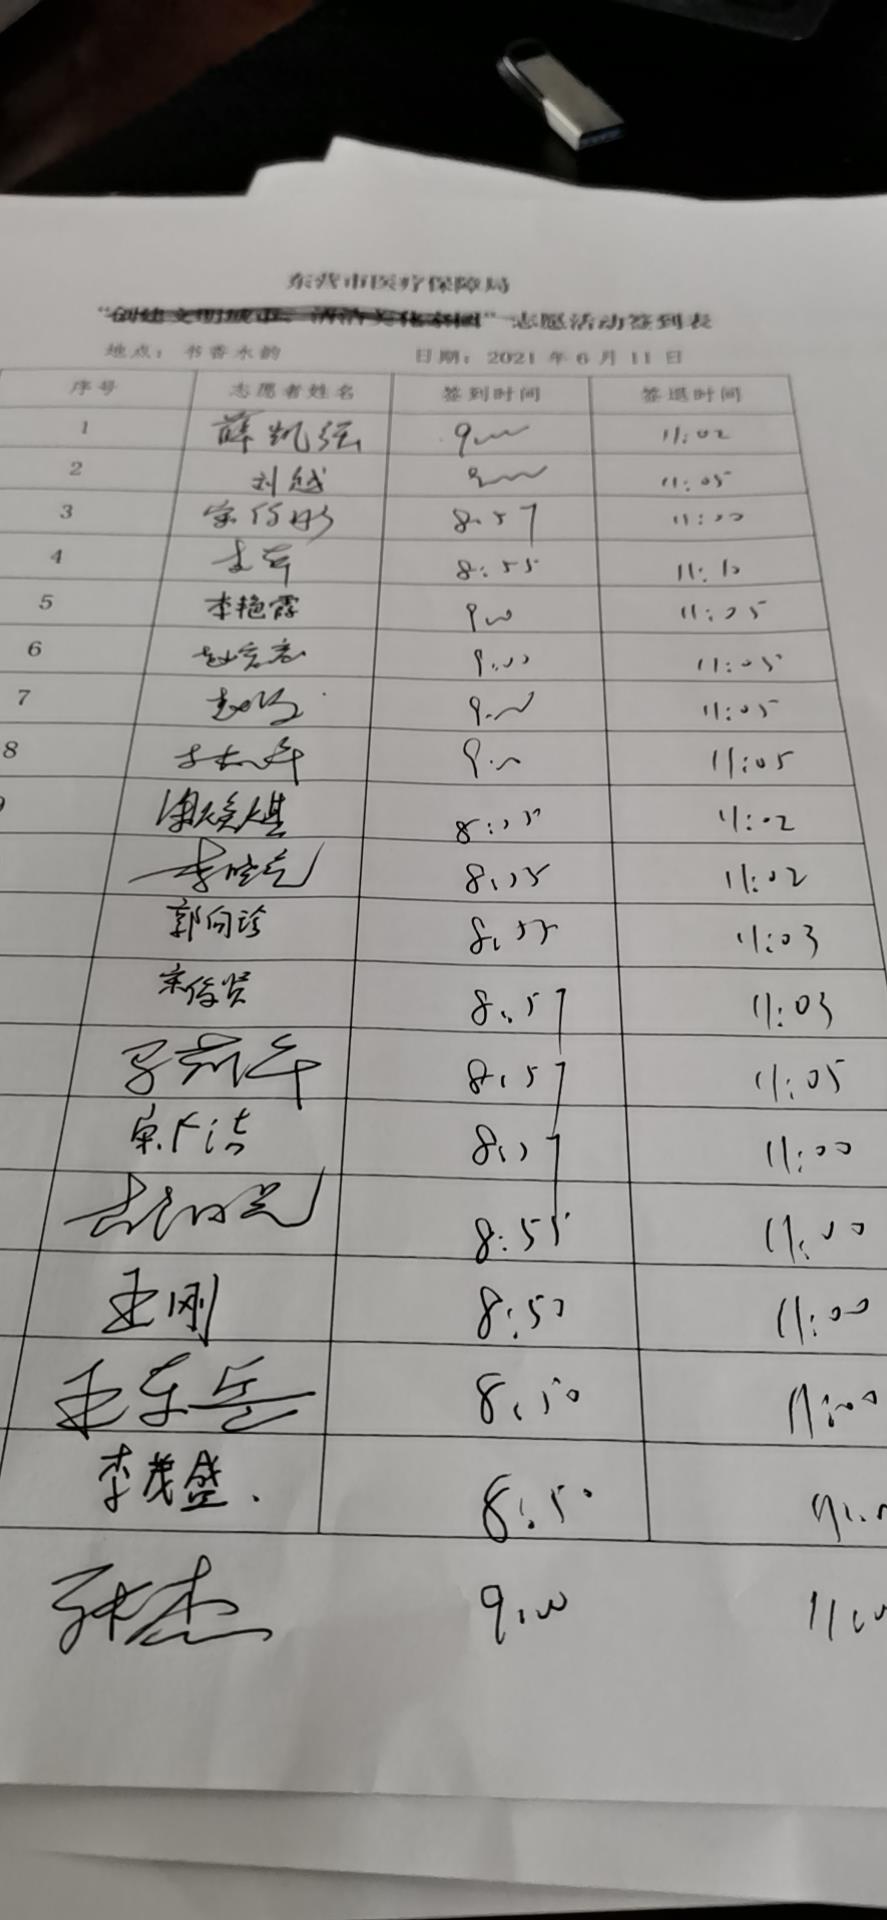 东营市医疗保障局
“创建文明城市、清洁美化家园” 志愿活动签到表
地点：书香水韵 日期：2021 年 6 月 11 日
序号 志愿者姓名 签到时间 签退时间
1 薛凯强 9:00 11:02
2 刘越 9:00 11:05
3 8:57 11:00
4 8:55 11:10
5 李艳霞 9:00 11:05
6 9:00 11:05
7 9:00 11:05
8 9:00 11:05
8:55 11:02
李晓亮 8:55 11:02
郭向珍 8:55 11:03
宋俊贤 8:57 11:03
8:57 11:05
8:57 11:00
8:55 11:00
王刚 8:50 11:00
王东岳 8:50 11:00
李茂盛 8:50
张杰 9:00 11:00